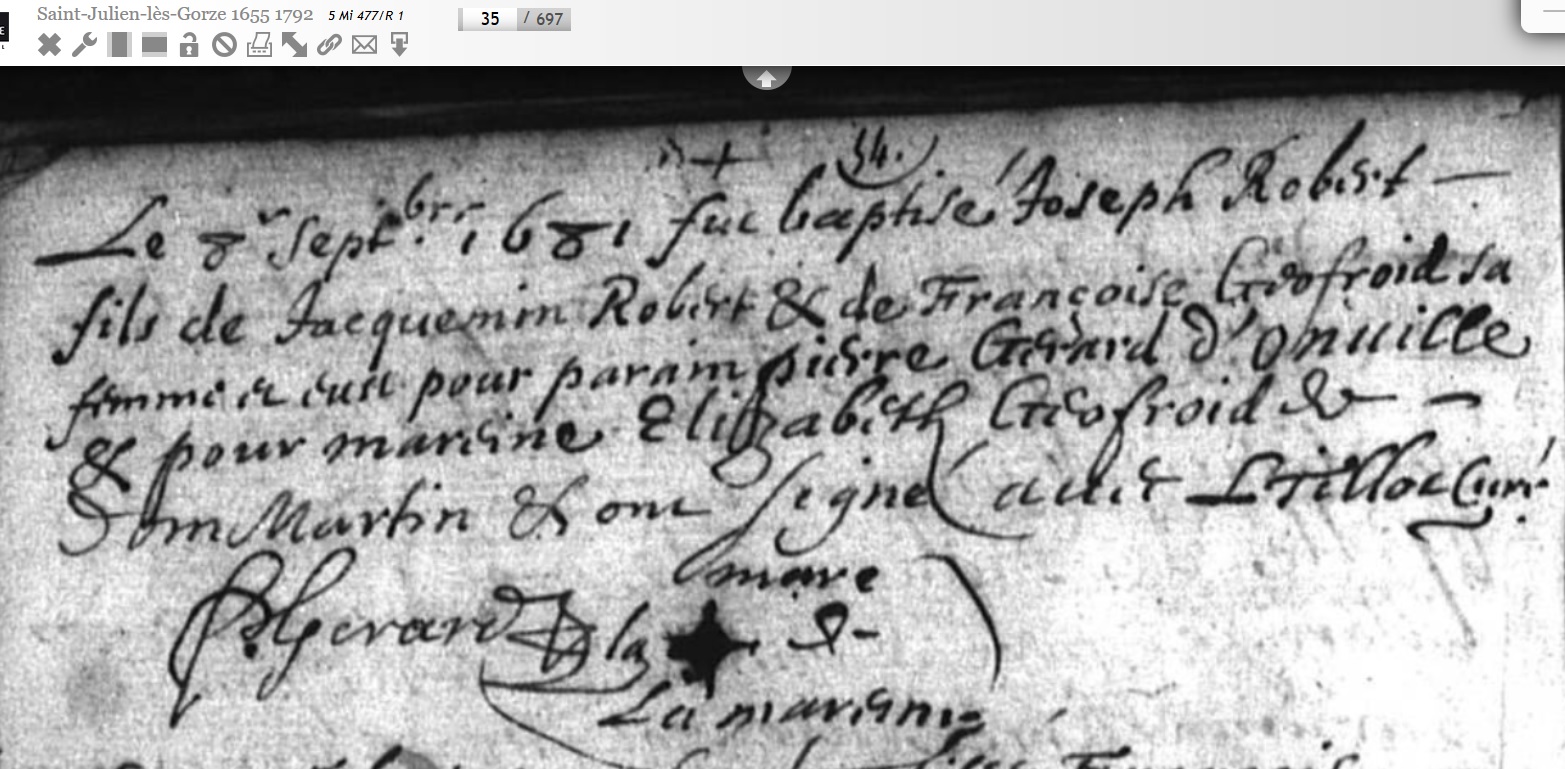 Saint-Julien-lès-Gorze 1655 1792 5 Mi 477/R 1 35 / 697
34.
Le 8 Sept.brr 1681 fut baptise Joseph Robert
fils de Jacquemin Robert & de Françoise Geofroid sa
femme et eust pour parain pierre Gerard d'onuille
& pour mareine Elizabeth Geofroid de
Dom Martin & ont signe auec Curé
P Gerard la marque de
La mareine